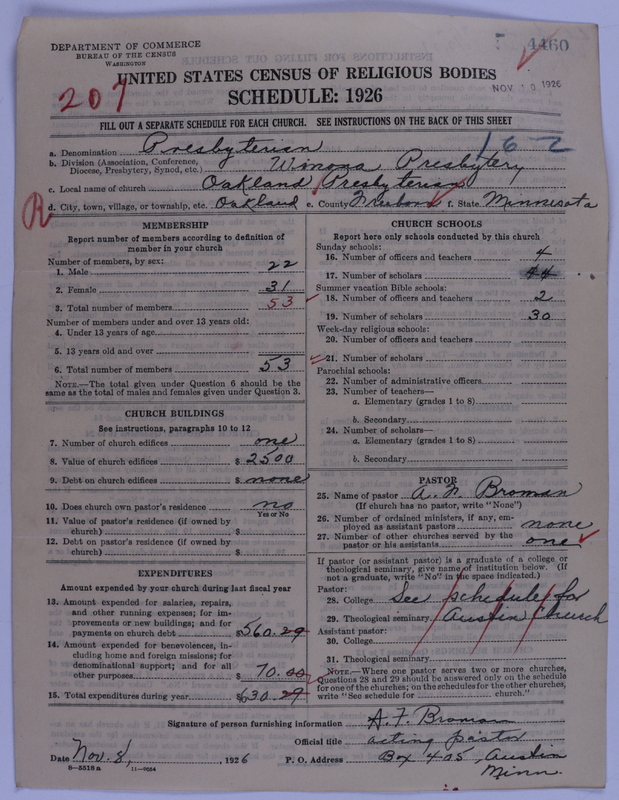 DEPARTMENT OF COMMERCE
BUREAU OF THE CENSUS
WASHINGTON
4460
NOV 10 1926
207
UNITED STATES CENSUS OF RELIGIOUS BODIES
SCHEDULE: 1926
FILL OUT A SEPARATE SCHEDULE FOR EACH CHURCH. SEE INSTRUCTIONS ON THE BACK OF THIS SHEET
162
a. Denomination Presbyterian
b. Division (Association, Conference, Diocese, Presbytery, Synod, etc.) Winona Presbytery
c. Local name of church Oakland Presbyterian
R
d. City, town, village, or township, etc. Oakland e. County Freeborn f. State Minnesota
MEMBERSHIP
Report number of members according to definition of
member in your church
Number of members, by sex:
1. Male 22
2. Female 31
3. Total number of members 53
Number of members under and over 13 years old:
4. Under 13 years of age
5. 13 years old and over
6. Total number of members 53
NOTE.—The total given under Question 6 should be the
same as the total of males and females given under Question 3.
CHURCH BUILDINGS
See instructions, paragraphs 10 to 12
7. Number of church edifices one
8. Value of church edifices $ 2500
9. Debt on church edifices $ none
10. Does church own pastor's residence no
Yes or No
11. Value of pastor's residence (if owned by
church) $
12. Debt on pastor's residence (if owned by
church) $
EXPENDITURES
Amount expended by your church during last fiscal year
13. Amount expended for salaries, repairs,
and other running expenses; for im-
provements or new buildings; and for
payments on church debt $ 560.29
14. Amount expended for benevolences, in-
cluding home and foreign missions; for
denominational support; and for all
other purposes $ 70.00
15. Total expenditures during year $ 630.29
CHURCH SCHOOLS
Report here only schools conducted by this church
Sunday schools:
16. Number of officers and teachers 4
17. Number of scholars 44
Summer vacation Bible schools:
18. Number of officers and teachers 2
19. Number of scholars 30
Week-day religious schools:
20. Number of officers and teachers
21. Number of scholars
Parochial schools:
22. Number of administrative officers
23. Number of teachers—
a. Elementary (grades 1 to 8)
b. Secondary
24. Number of scholars—
a. Elementary (grades 1 to 8)
b. Secondary
PASTOR
25. Name of pastor A. F. Broman
(If church has no pastor, write "None")
26. Number of ordained ministers, if any, em-
ployed as assistant pastors none
27. Number of other churches served by the
pastor or his assistants one
If pastor (or assistant pastor) is a graduate of a college or
theological seminary, give name of institution below. (If
not a graduate, write "No" in the space indicated.)
Pastor:
28. College See schedule for
29. Theological seminary Austin Church
Assistant pastor:
30. College
31. Theological seminary
NOTE.—Where one pastor serves two or more churches,
Questions 28 and 29 should be answered only on the schedule
for one of the churches; on the schedules for the other churches,
write "See schedule for church."
Signature of person furnishing information A. F. Broman
Official title acting pastor
Date Nov. 8, 1926 P. O. Address Box 405, Austin
Minn.
8—5518a 11—9054